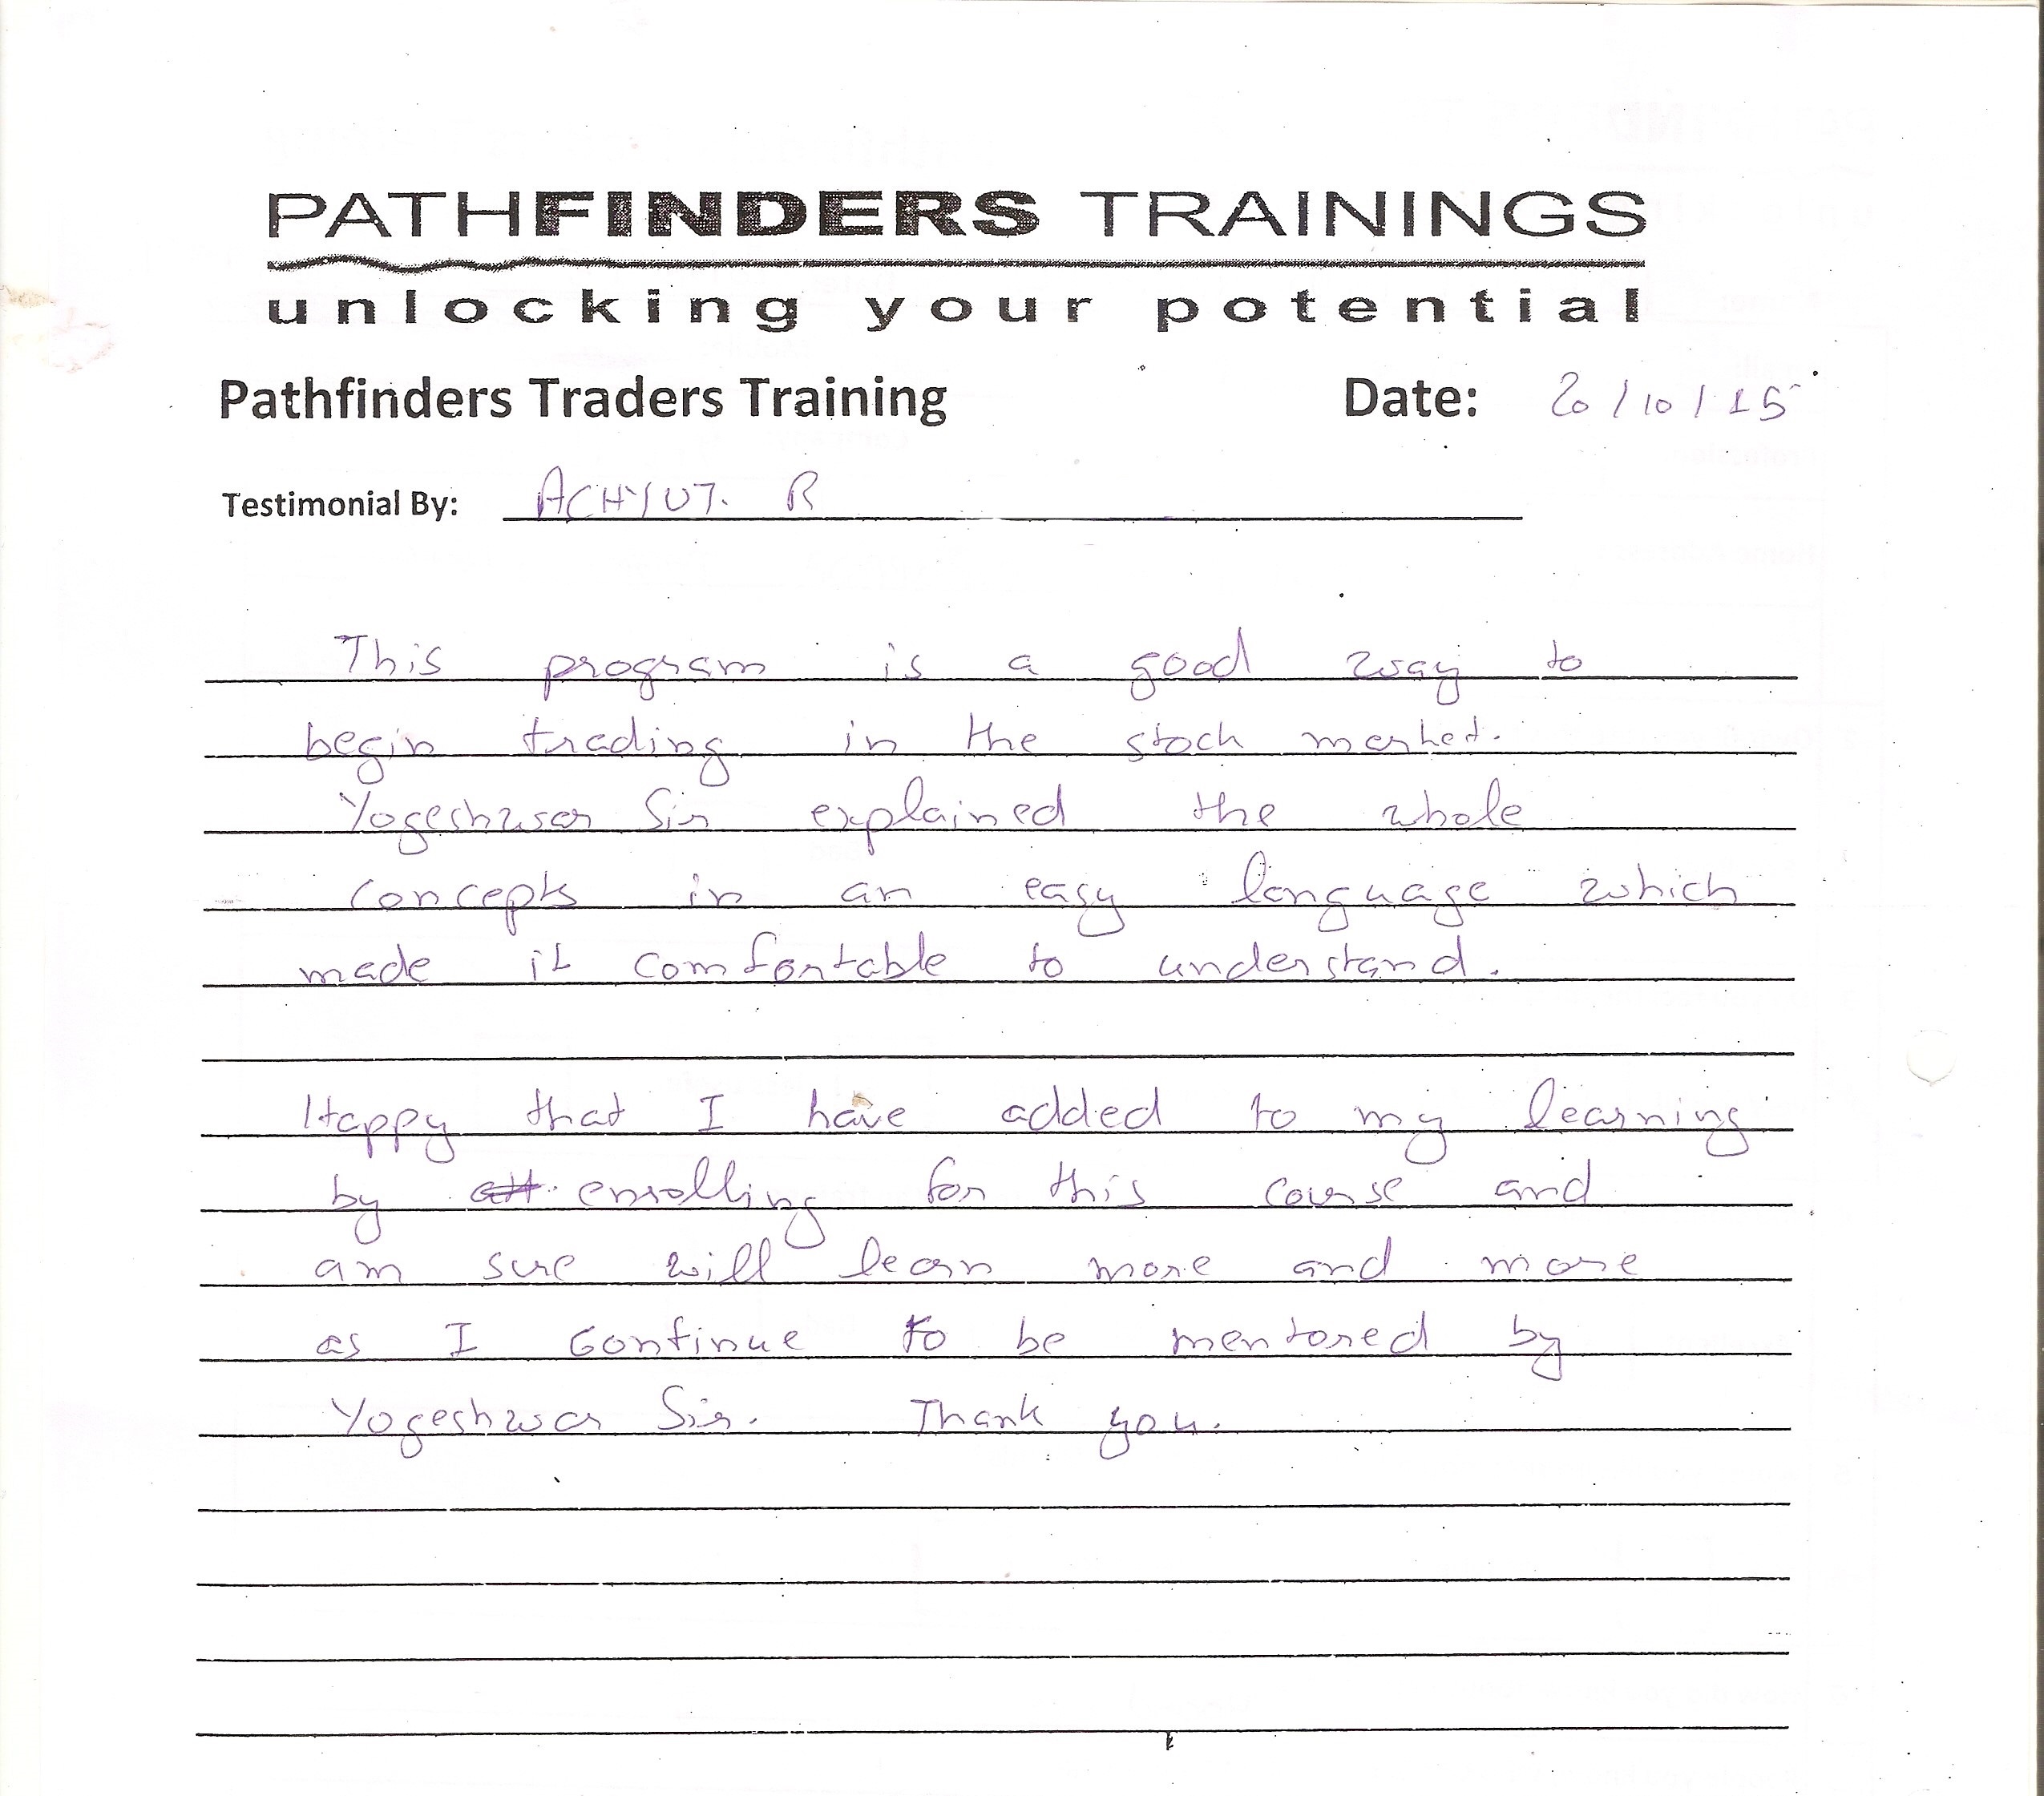 PATHFINDERS TRAININGS
unlocking your potential
Pathfinders Traders Training Date: 20/10/15
Testimonial By: ACHYUT. R
This program is a good way to
begin trading in the stock market.
Yogeshwar Sir explained the whole
concepts in an easy language which
made it comfortable to understand.
Happy that I have added to my learning
by enrolling for this course and
am sure will learn more and more
as I continue to be mentored by
Yogeshwar Sir. Thank you.